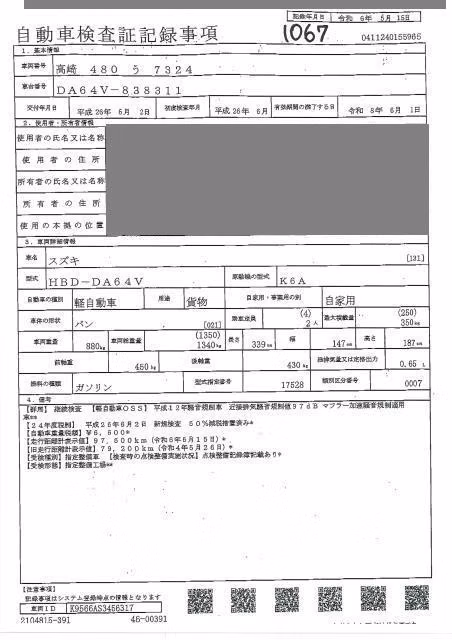 記録年月日 令和 6年 5月 15日
自動車検査証記録事項
1067
0411240155965
1．基本情報
車両番号 高崎 480 う 7324
車台番号 DA64V-838311
交付年月日 平成 26年 6月 2日 初度検査年月 平成 26年 6月 有効期間の満了する日 令和 8年 6月 1日
2．使用者・所有者情報
使用者の氏名又は名称
使用者の住所
所有者の氏名又は名称
所有者の住所
使用の本拠の位置
3．車両詳細情報
車名 スズキ [131]
型式 HBD-DA64V 原動機の型式 K6A
自動車の種別 軽自動車 用途 貨物 自家用・事業用の別 自家用
車体の形状 バン [021] 乗車定員 (4) 2人 最大積載量 (250) 350kg
車両重量 880kg 車両総重量 (1350) 1340kg 長さ 339cm 幅 147cm 高さ 187cm
前軸重 450kg 後軸重 430kg 総排気量又は定格出力 0.65L
燃料の種類 ガソリン 型式指定番号 17528 類別区分番号 0007
4．備考
継続検査 【軽自動車OSS】 平成12年騒音規制車 近接排気騒音規制値97dB マフラー加速騒音規制適用
車**
【24年度税制】 平成26年6月2日 新規検査 50%減税措置済み*
【自動車重量税額】 ¥6,600*
【走行距離計表示値】 97,500km (令和6年5月15日)*
【旧走行距離計表示値】 79,200km (令和4年5月26日)*
【受検種別】 指定整備車 【検査時の点検整備実施状況】 点検整備記録簿記載あり*
【受検形態】 指定整備工場**
【注意事項】
記録事項はシステム登録時点の情報となります
車両ID K9566AS3456317
2104815-391 46-00391